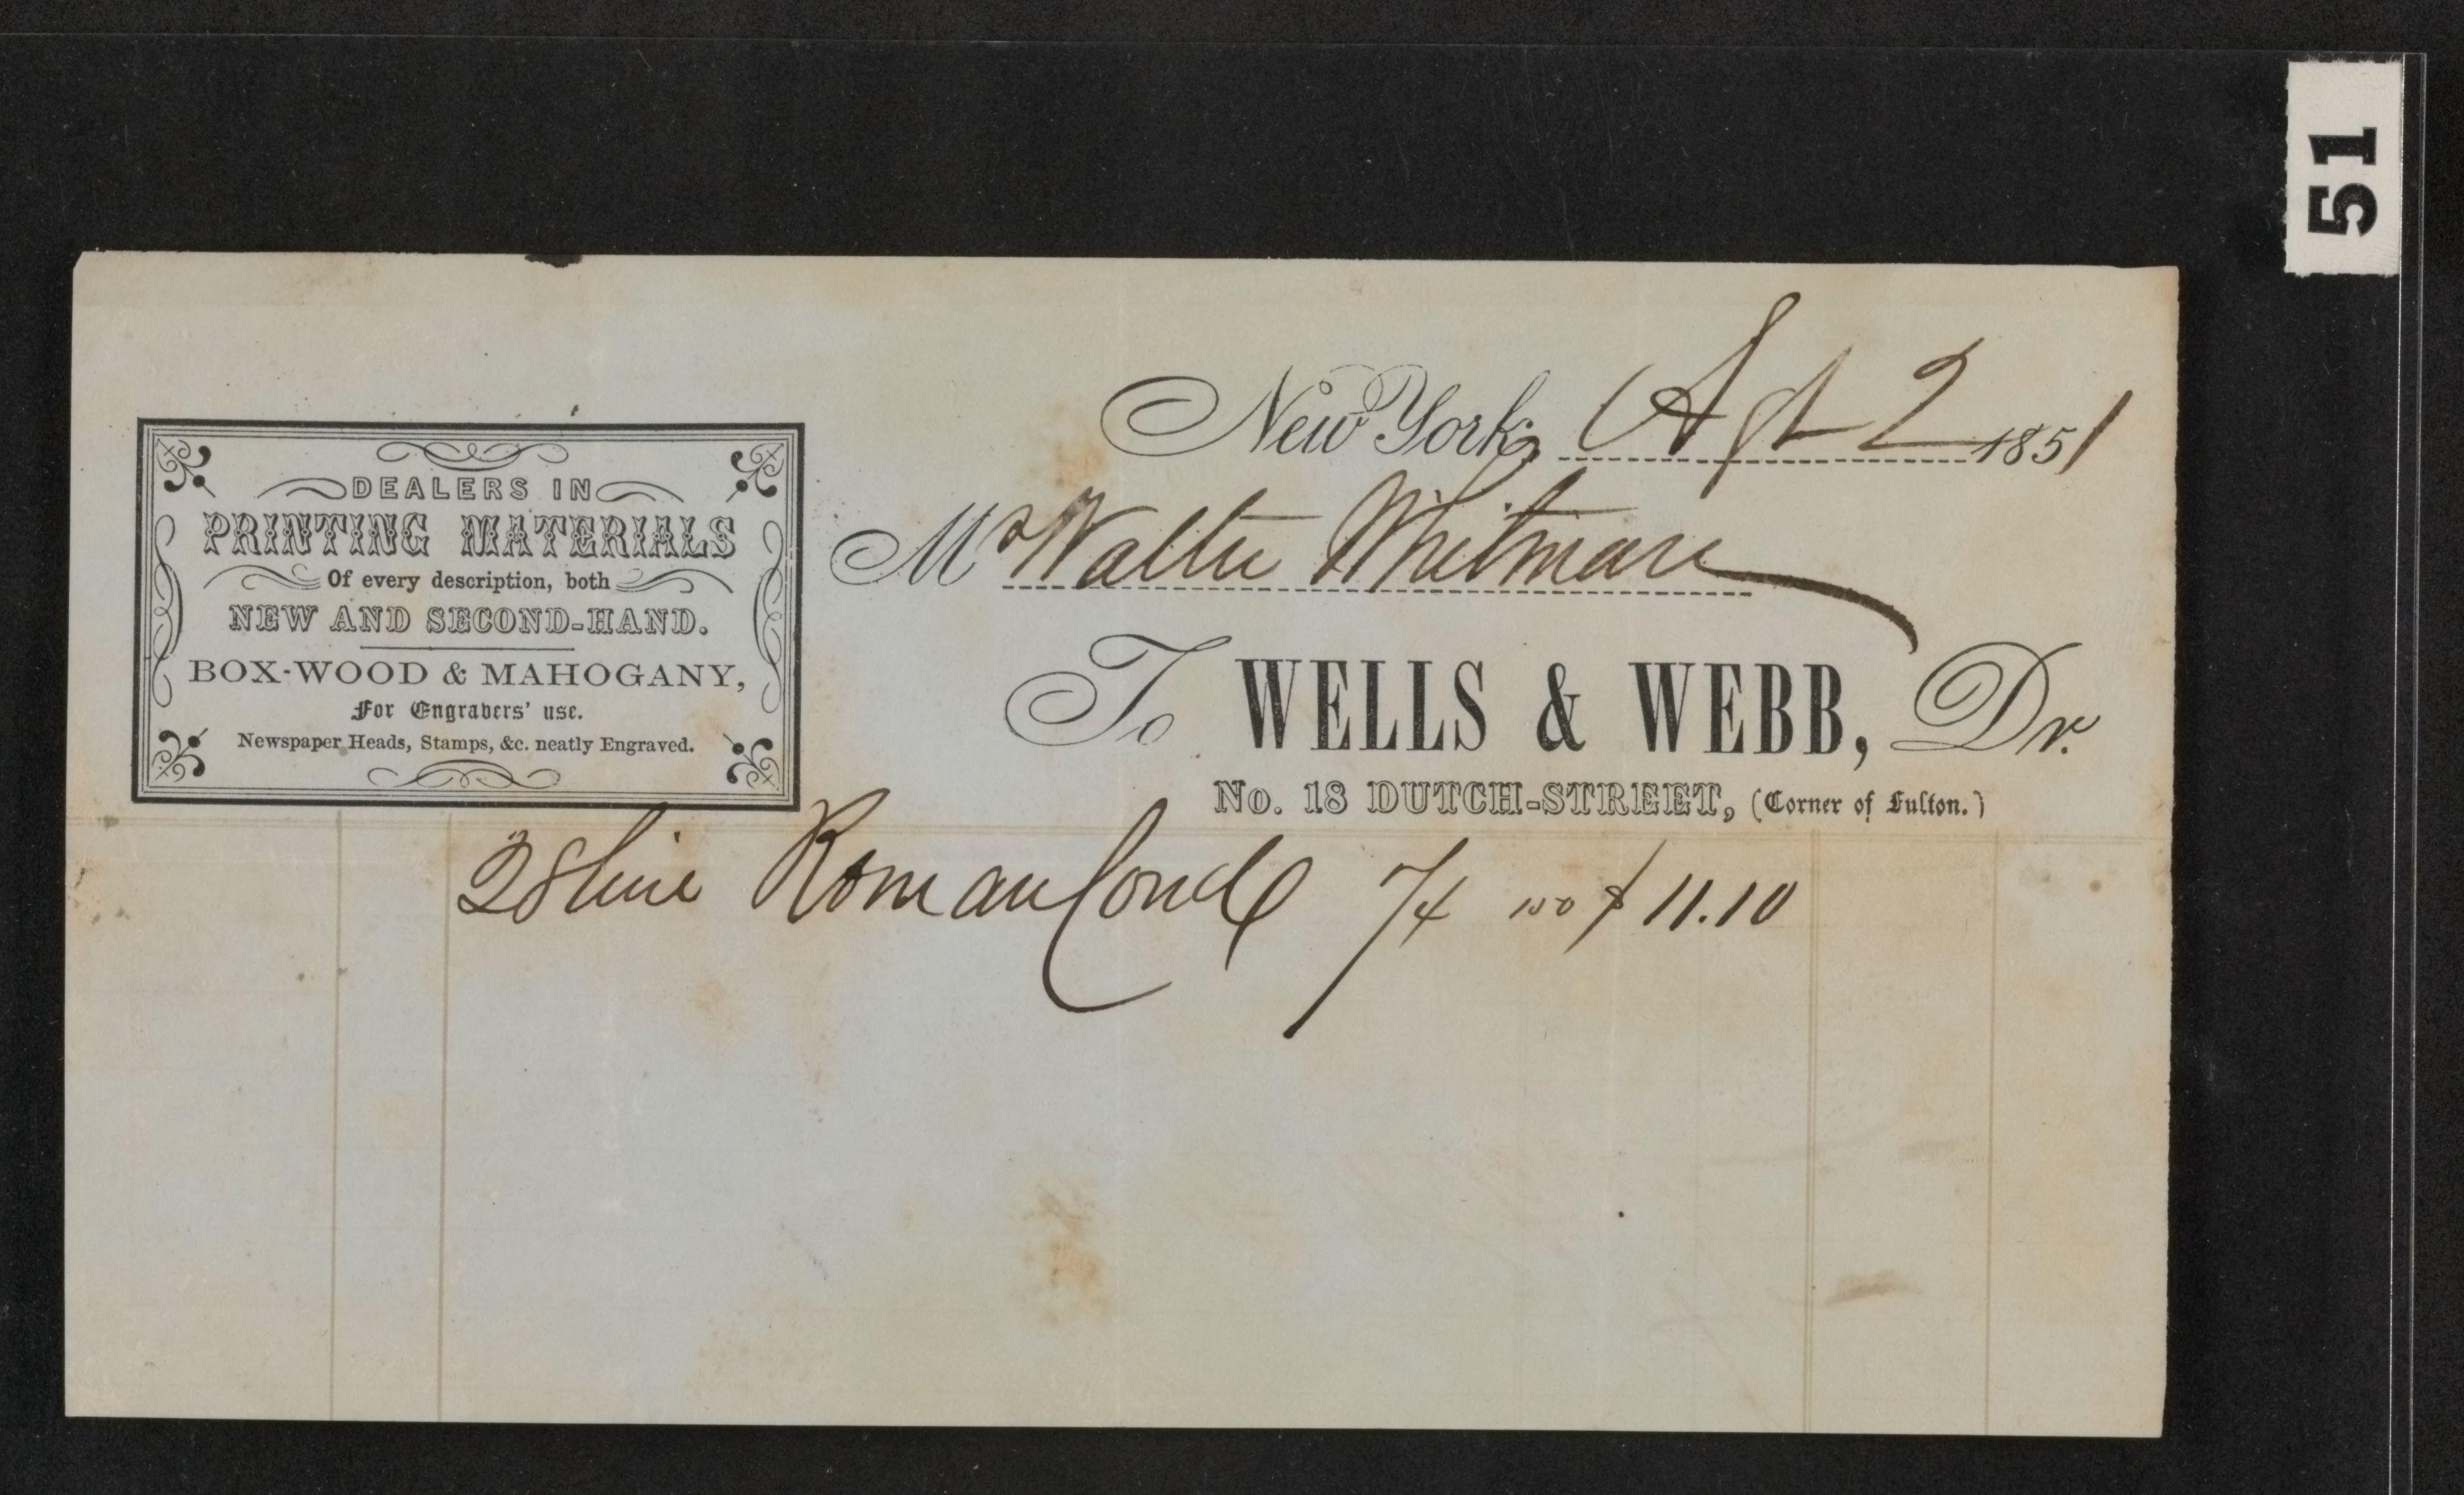 51
New York, Apl 2 1851
Mr Walter Whitman
To WELLS & WEBB, Dr.
No. 18 DUTCH-STREET, (Corner of Fulton.)
DEALERS IN
PRINTING MATERIALS
Of every description, both
NEW AND SECOND-HAND.
BOX-WOOD & MAHOGANY,
For Engravers' use.
Newspaper Heads, Stamps, &c. neatly Engraved.
28 line Roman Cond 74 $11.10